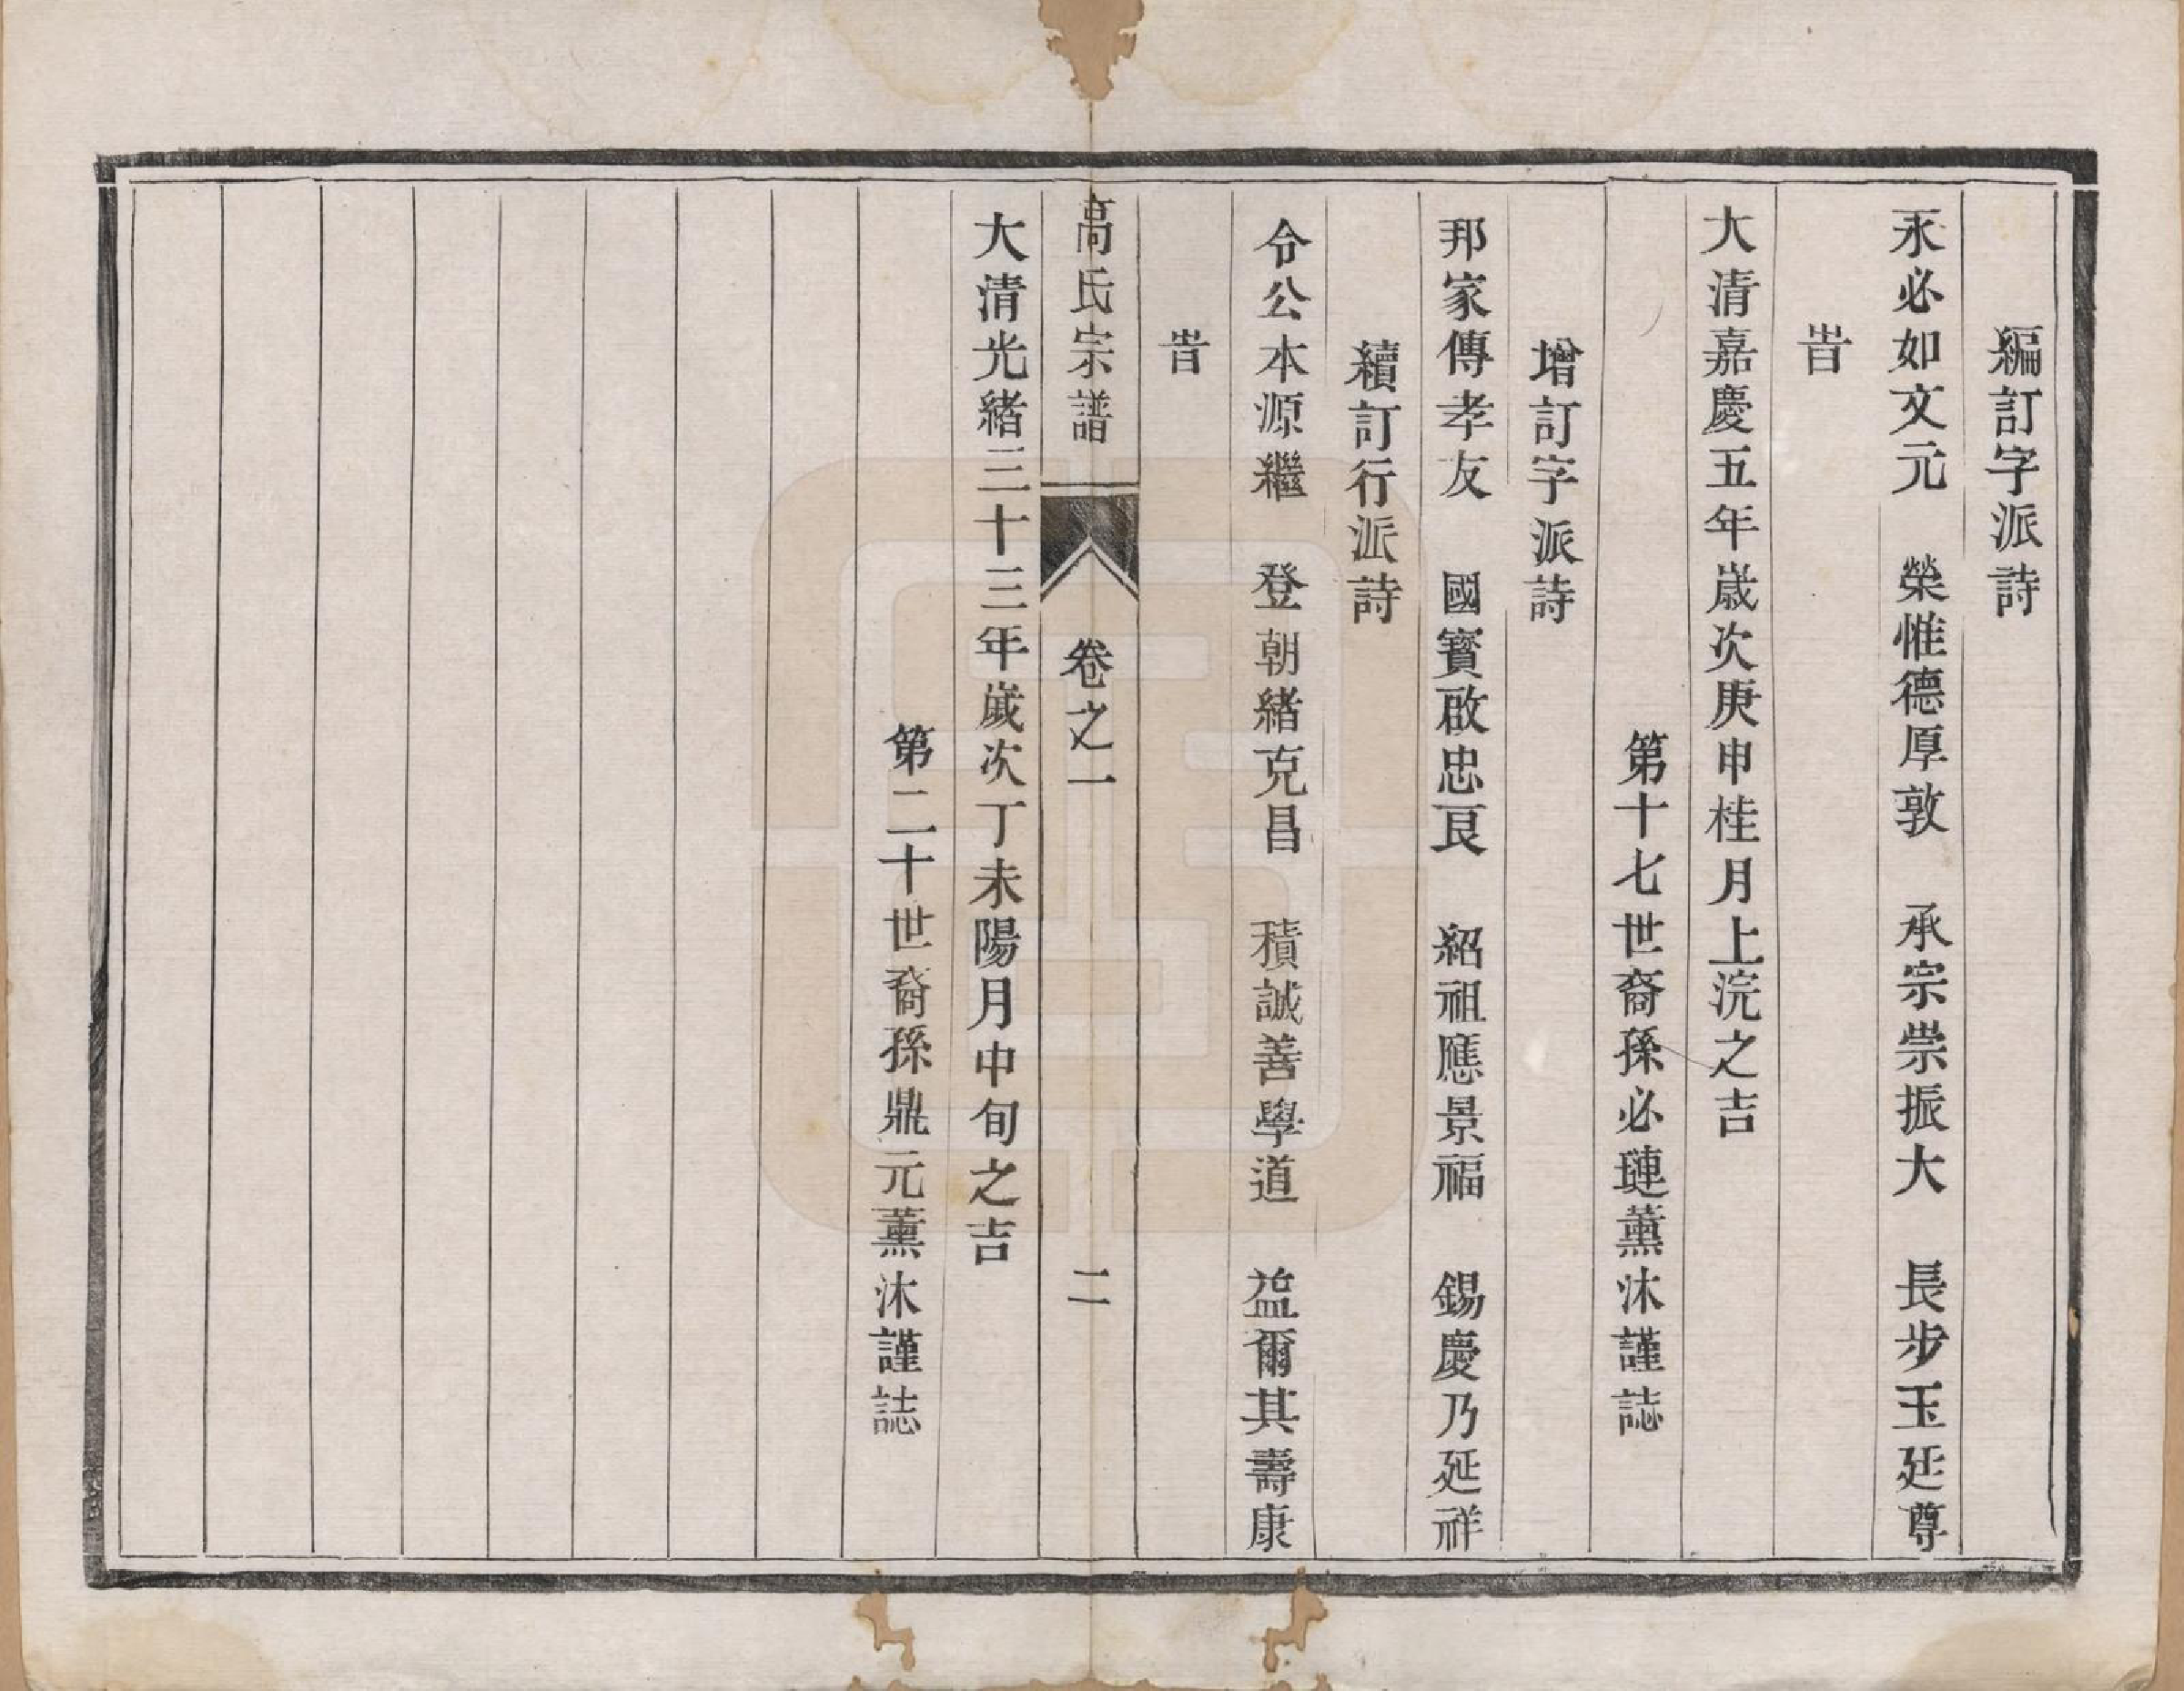 編訂字派詩
永必如文元　榮惟德厚敦　承宗崇振大　長步玉廷尊
旹
大清嘉慶五年歲次庚申桂月上浣之吉
第十七世裔孫必璉薰沐謹誌
增訂字派詩
邦家傳孝友　國寳啟忠良　紹祖應景福　錫慶乃延祥
續訂行派詩
令公本源繼　登朝緒克昌　積誠善學道　益爾其壽康
旹
高氏宗譜　卷之一　二
大清光緒三十三年歲次丁未陽月中旬之吉
第二十世裔孫鼎元薰沐謹誌